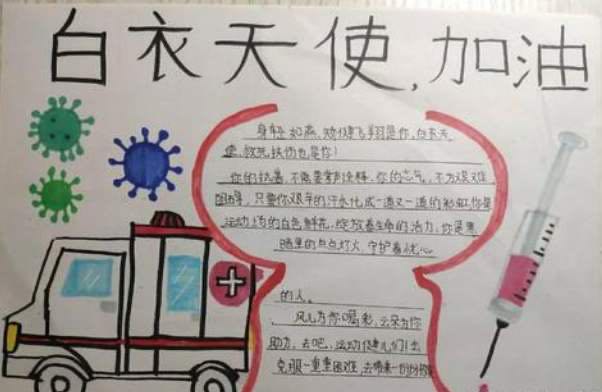 白衣天使,加油
身轻如燕,矫健飞翔是你,白衣天
使,救死扶伤也是你!
你的执着,不需要声诠释,你的志气,不为艰难
困导,只要你艰辛的汗水化成一道又一道的彩虹,你是
运动场的白色鲜花,绽放着生命的活力,你是黑
暗里的点点灯火,守护着忧心
的人。
风儿为你喝彩,云朵为你
助力,去吧,运动健儿们!去
克服一重重困难,去